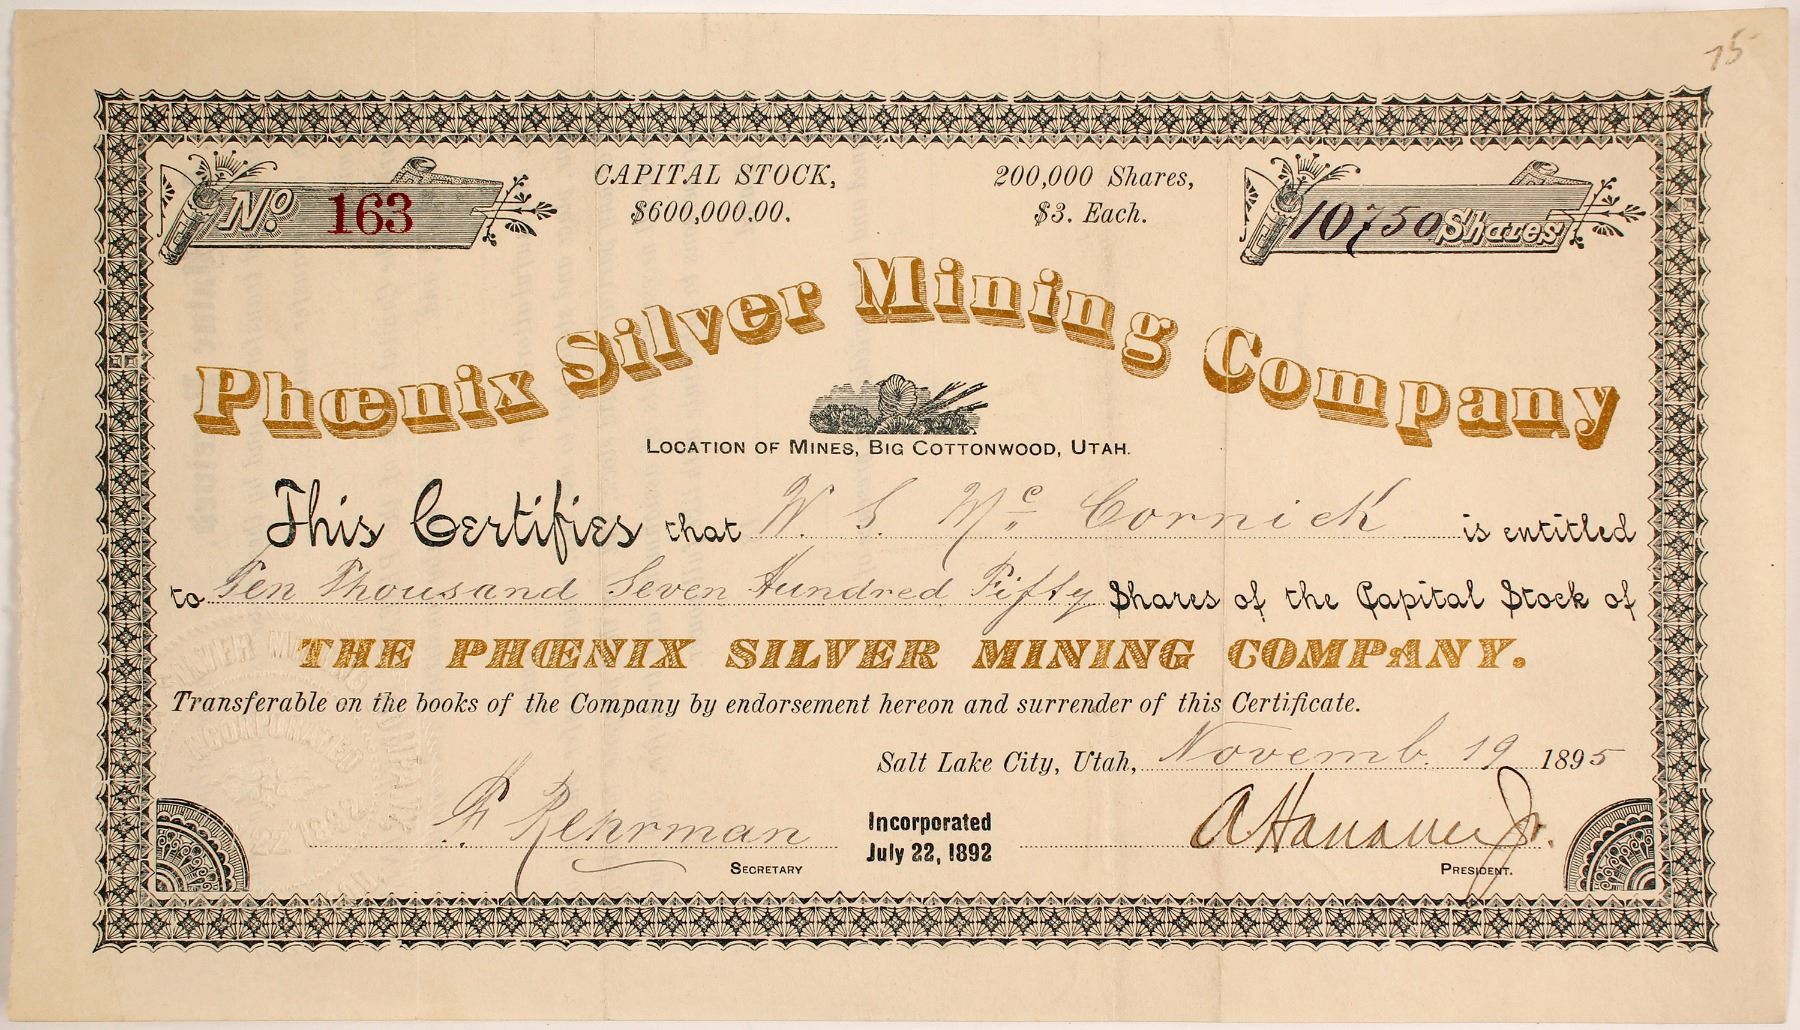 75
No. 163
CAPITAL STOCK, 200,000 Shares,
$600,000.00. $3. Each.
10750 Shares
Phœnix Silver Mining Company
LOCATION OF MINES, BIG COTTONWOOD, UTAH.
This Certifies that W. S. Mc Cornick is entitled
to Ten Thousand Seven Hundred Fifty Shares of the Capital Stock of
THE PHŒNIX SILVER MINING COMPANY.
Transferable on the books of the Company by endorsement hereon and surrender of this Certificate.
Salt Lake City, Utah, Novemb. 19 1895
F. Rehrman Incorporated A Hanauer Jr.
July 22, 1892
SECRETARY PRESIDENT.
INCORPORATED